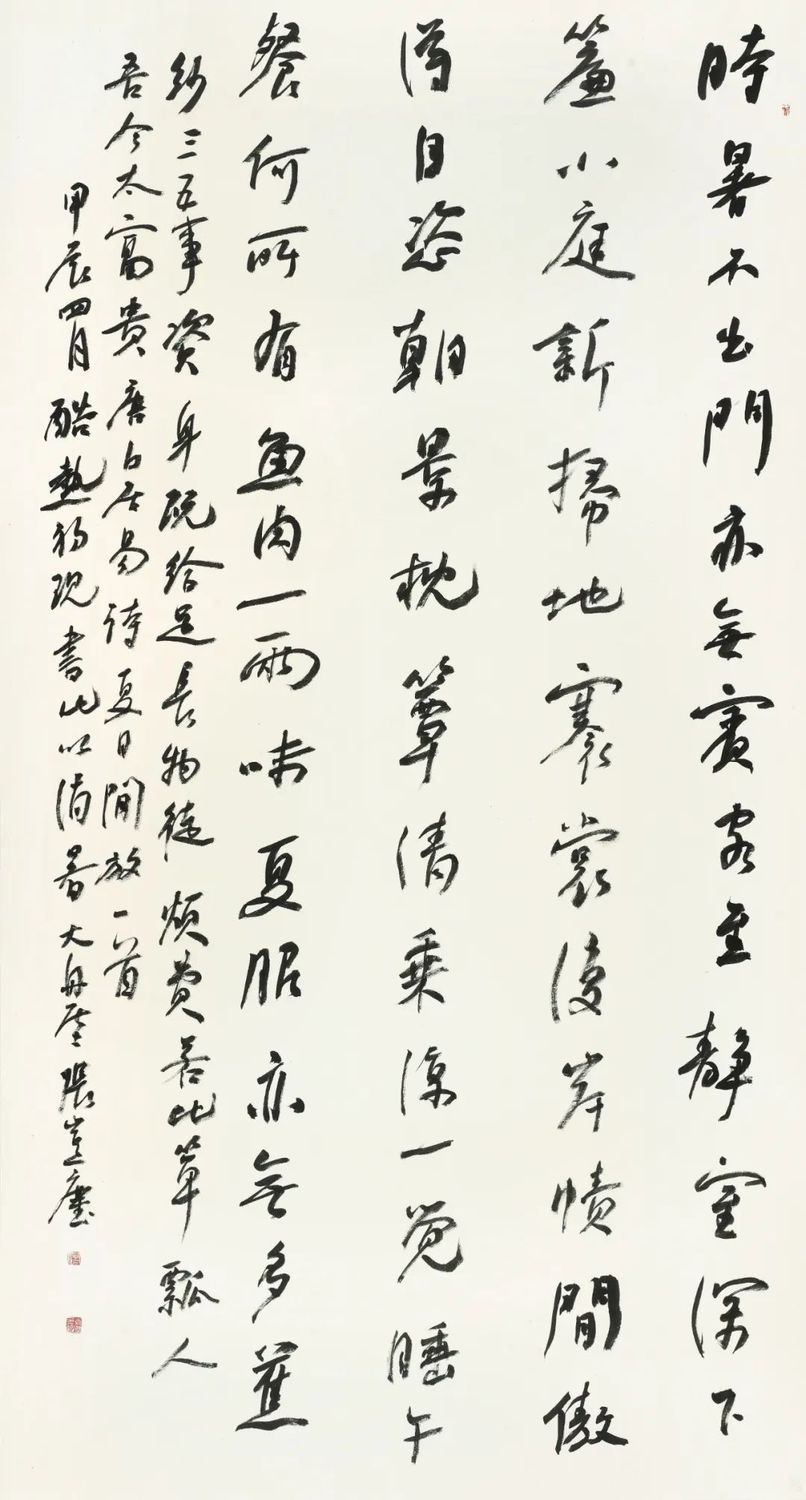 時暑不出門亦無賓客至靜室深下
簾小庭新掃地褰裳復岸幘間傲
得自恣朝景枕簟清乘涼一覺睡午
餐何所有魚肉一兩味夏服亦無多蕉
紗三五事資身既給足長物徒煩費若比簞瓢人
吾今太富貴唐白居易詩夏日閒放一首
甲辰四月酷熱初現書此以消暑大舟張塵